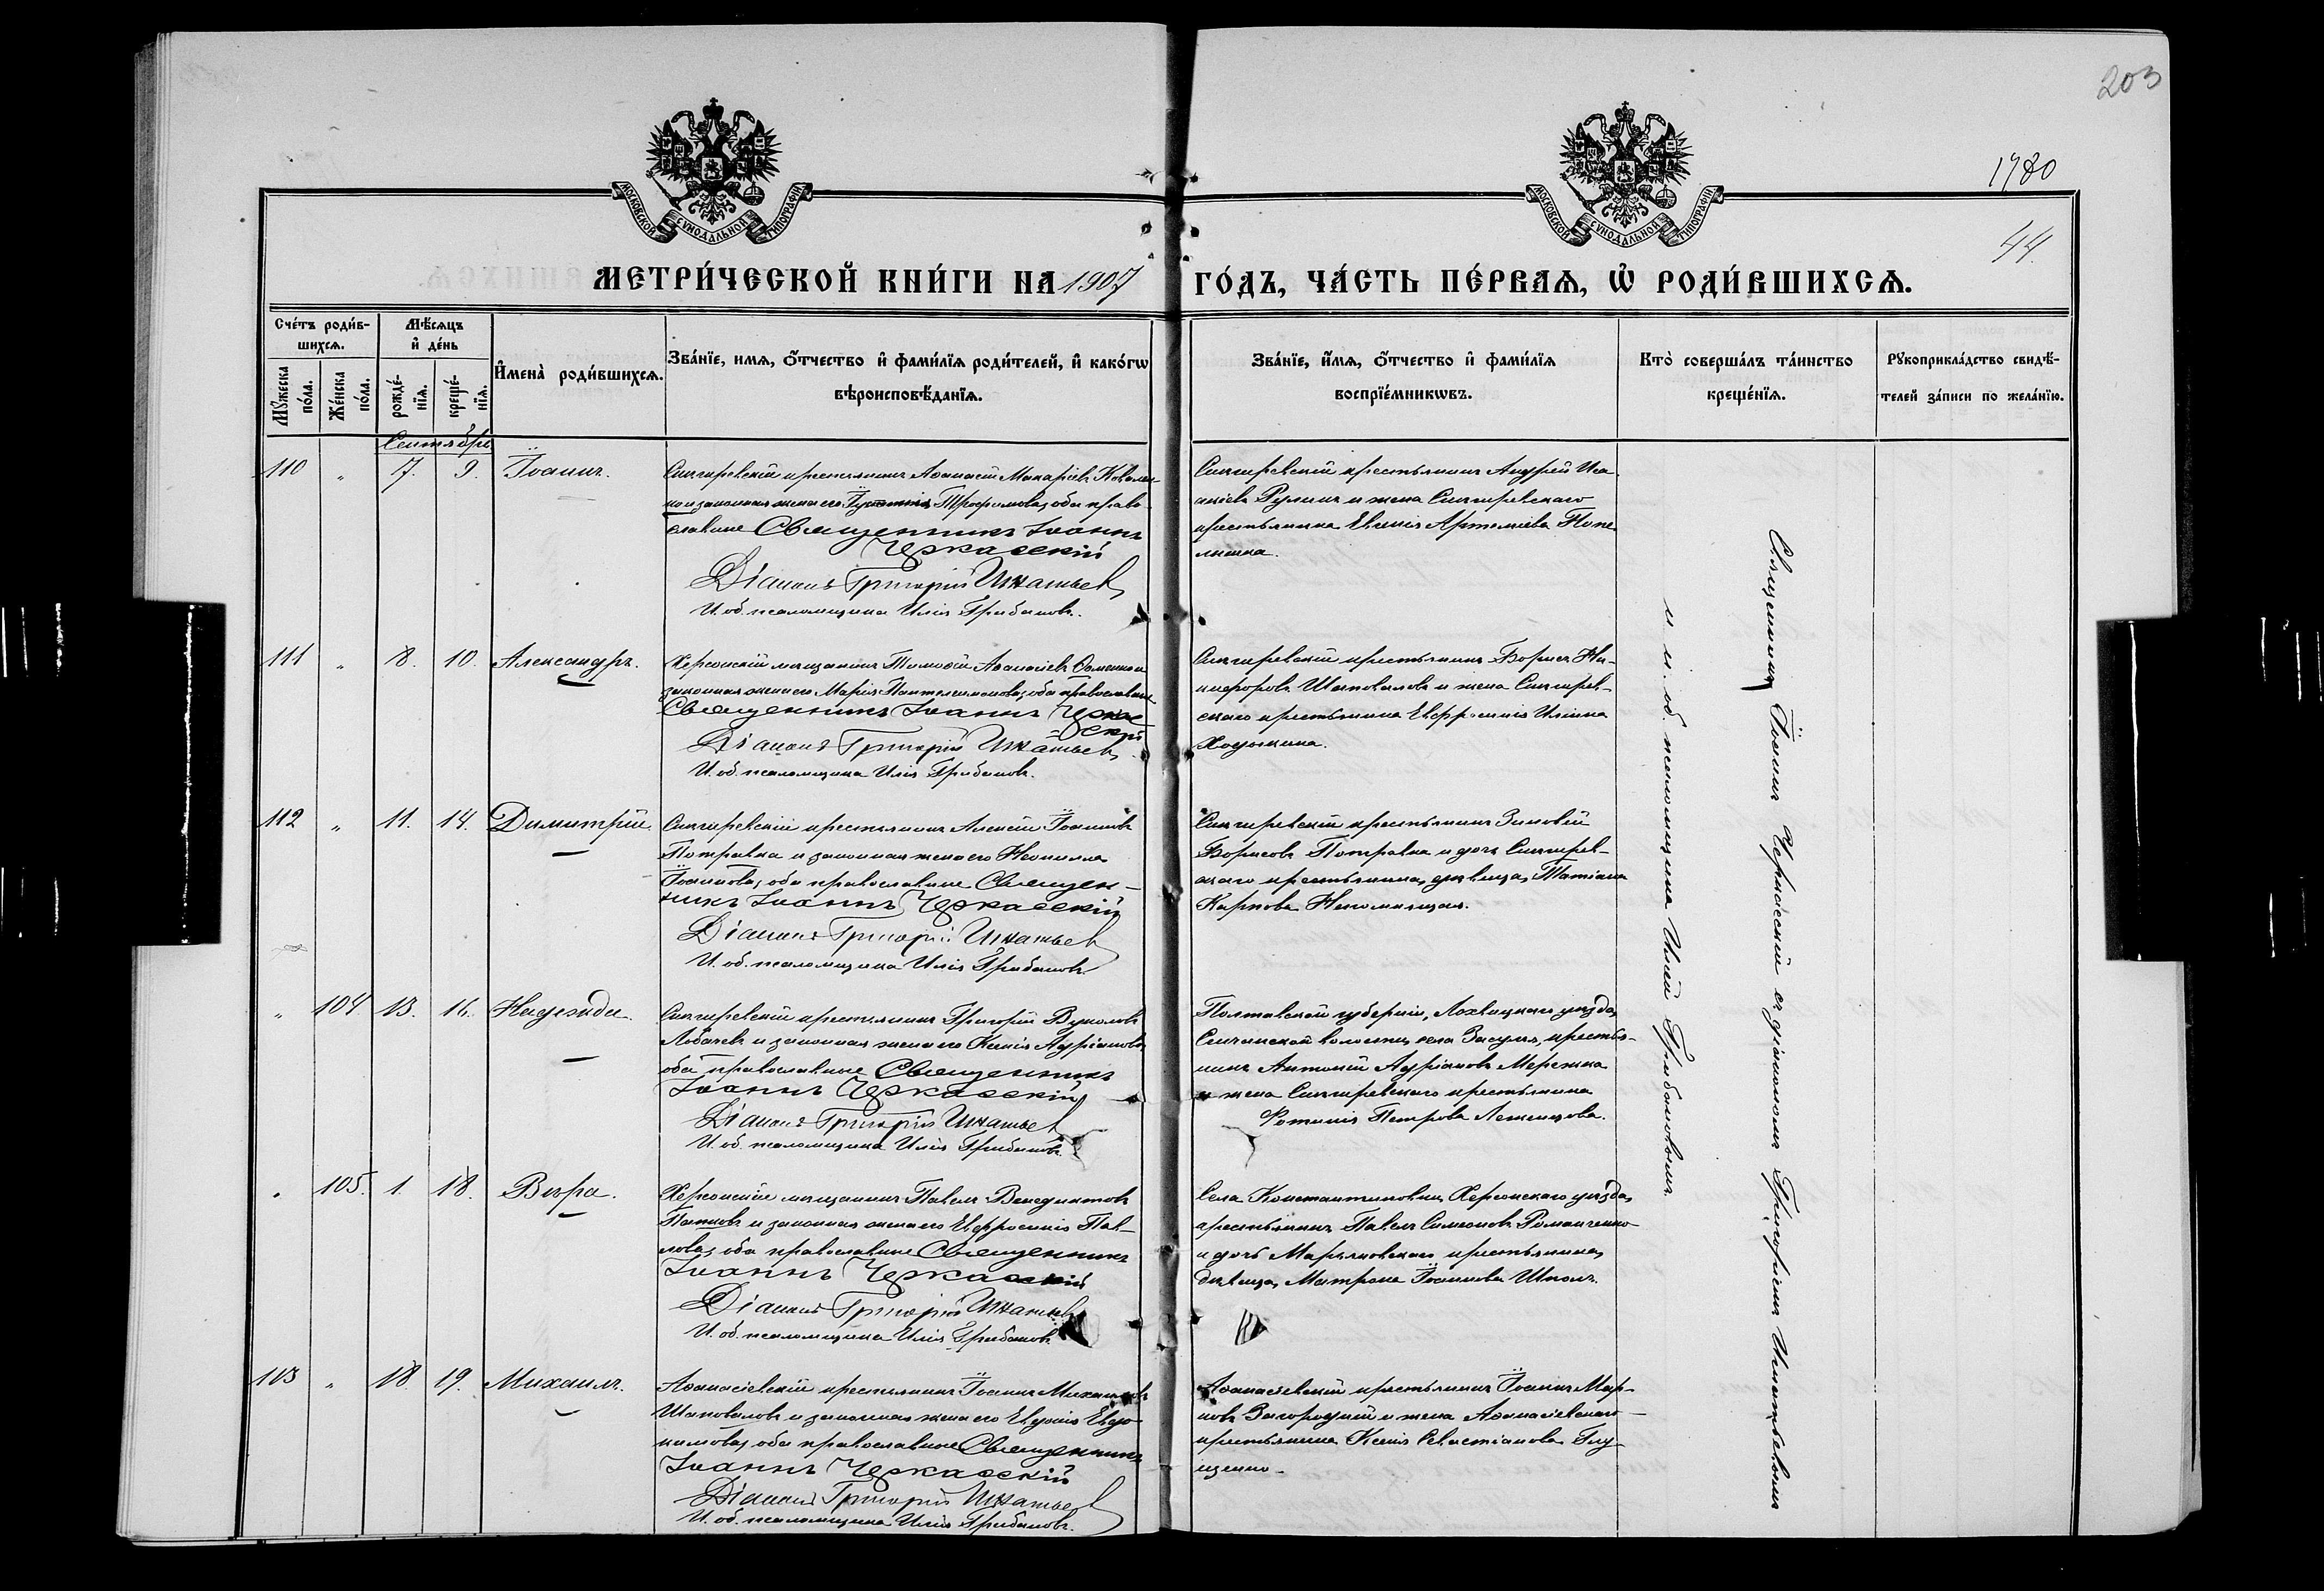 203
1780
44.
МОСКОВСКОЙ СУНОДАЛЬНОЙ ТИПОГРАФІИ
МОСКОВСКОЙ СУНОДАЛЬНОЙ ТИПОГРАФІИ
МЕТРИ́ЧЕСКОЙ КНИ́ГИ НА 1907 ГО́ДЪ, ЧА́СТЬ ПЕ́РВАѦ, Ѽ РОДИ́ВШИХСѦ.
Сче́тъ роди́в-
шихсѧ.
Мѣ́сѧцъ
и҆ де́нь
Мꙋ́жеска
по́ла.
Же́нска
по́ла.
рожде́-
нїѧ.
креще́-
нїѧ.
И҆мена̀ роди́вшихсѧ.
Зва́нїе, имѧ, ѻ҆́тчество и҆ фами́лїѧ роди́телей, и҆ како́гѡ
вѣроисповѣ́данїѧ.
Зва́нїе, и҆́мѧ, ѻ҆́тчество и҆ фами́лїѧ
воспрїе́мникѡвъ.
Кто̀ соверша́лъ та́инство
креще́нїѧ.
Рꙋкоприкла́дство свидѣ́-
телей за́писи по жела́нїю.
Сентябрь
110 " 7. 9. Іоаннъ.
Снигиревскій крестьянинъ Аѳанасій Макаріевъ Ковален-
ко и законная жена его Трофимова, оба право-
славные Священникъ Іоаннъ
Черкасскій
Діаконъ Григорій Игнатьев
И. об. псаломщика Илія Грибановъ.
Снигиревскій крестьянинъ Андрей Иса-
акіевъ Рулинъ и жена Снигиревскаго
крестьянина Евгенія Артеміева
111 " 8. 10. Александръ.
Херсонскій мѣщанинъ Тимоѳей Аѳанасіевъ и
законная жена его Марія Пантелеимонова, оба православные
Священникъ Іоаннъ Черкас
скій
Діаконъ Григорій Игнатьев
И. об. псаломщика Илія Грибановъ.
Снигиревскій крестьянинъ Борисъ Ни-
кифоровъ Шаповаловъ и жена Снигирев-
скаго крестьянина Евфросинія Иліина
112 " 11. 14. Димитрій.
Снигиревскій крестьянинъ Алексій Іоанновъ
Потравка и законная жена его Неонилла
Іоаннова, оба православные Священ-
никъ Іоаннъ Черкасскій
Діаконъ Григорій Игнатьев
И. об. псаломщика Илія Грибановъ
Снигиревскій крестьянинъ Зиновій
Борисовъ Потравка и дочь Снигирев-
скаго крестьянина, дѣвица, Татіана
Карпова Непомнящая.
" 104 13. 16. Надежда.
Снигиревскій крестьянинъ Григорій Вуколовъ
Лобачевъ и законная жена его Ксенія Адріанова,
оба православные Священникъ
Іоаннъ Черкасскій
Діаконъ Григорій Игнатьев
И. об. псаломщика Илія Грибановъ.
Полтавской губерніи, Лохвицкаго уѣзда,
Сенчанской волости, села Засулья, крестья-
нинъ Антоній Адріановъ Мережка
и жена Снигиревскаго крестьянина
Фотинія Петрова
" 105. 1. 18. Вѣра.
Херсонскій мѣщанинъ Павелъ Венедиктовъ
и законная жена его Евфросинія Пав-
лова, оба православные Священникъ
Іоаннъ Черкасскій
Діаконъ Григорій Игнатьев
И. об. псаломщика Илія Грибановъ
Села Константиновки, Херсонскаго уѣзда,
крестьянинъ Павелъ Симеоновъ Романченко
и дочь крестьянина,
дѣвица, Матрона Іоаннова
113 " 18. 19. Михаилъ.
Аѳанасіевскій крестьянинъ Іоаннъ Михаиловъ
Шаповаловъ и законная жена его Евдокія Евдо-
кимова, оба православные Священникъ
Іоаннъ Черкасскій
Діаконъ Григорій Игнатьев
И. об. псаломщика Илія Грибановъ.
Аѳанасіевскій крестьянинъ Іоаннъ Мар-
ковъ Загородній и жена Аѳанасіевскаго
крестьянина Ксенія Севастіанова Глу-
щенко
Священникъ Іоаннъ Черкасскій съ діакономъ Григоріемъ Игнатьевымъ
и и. об. псаломщика Иліей Грибановымъ.